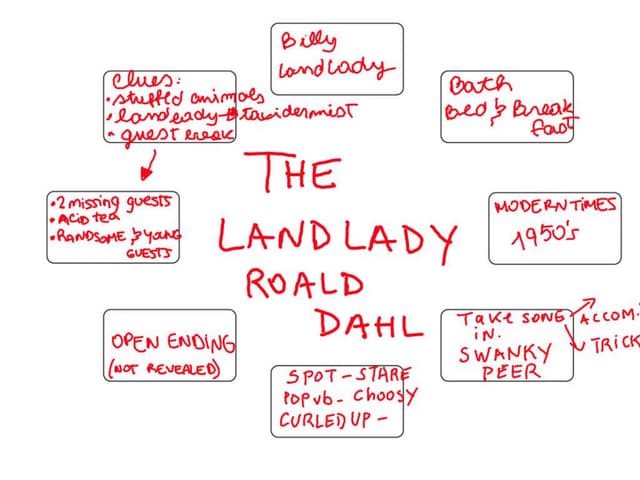 Billy
Landlady
Clues:
• stuffed animals
• landlady → taxidermist
• guest
Bath
Bed & Break
fast
THE
LANDLADY
ROALD
DAHL
• 2 missing guests
• ACID tea
• HANDSOME & YOUNG
GUESTS
MODERN TIMES
1950's
OPEN ENDING
(NOT REVEALED)
TAKE SONE
IN.
SWANKY
PEER
ACCOM.
TRICK
SPOT – STARE
POP Vb – Choosy
CURLED UP –